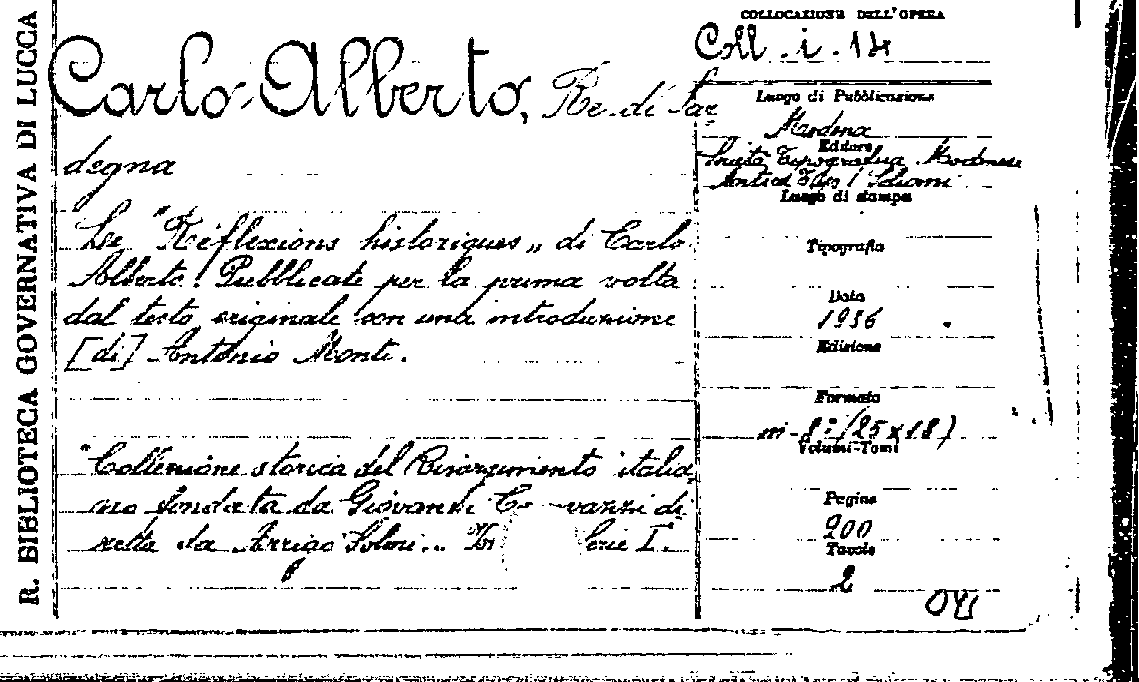 R. BIBLIOTECA GOVERNATIVA DI LUCCA
Carlo Alberto, Re di Sar
degna
Le "Réflexions historiques„ di Carlo
Alberto. Pubblicate per la prima volta
dal testo originale con una introduzione
[di] Antonio Monti.
"Collezione storica del Risorgimento italia
no fondata da Giovanni vazzi di
retta da Arrigo Solmi... Serie I.
COLLOCAZIONE DELL'OPERA
Coll. i. 14
Luogo di Pubblicazione
Modena
Editore
Società Tipografica Modenese
Antica Tip. Soliani
Luogo di stampa
Tipografia
Data
1936
Edizione
Formato
in-8° (25x18)
Volumi-Tomi
Pagine
200
Tavole
2